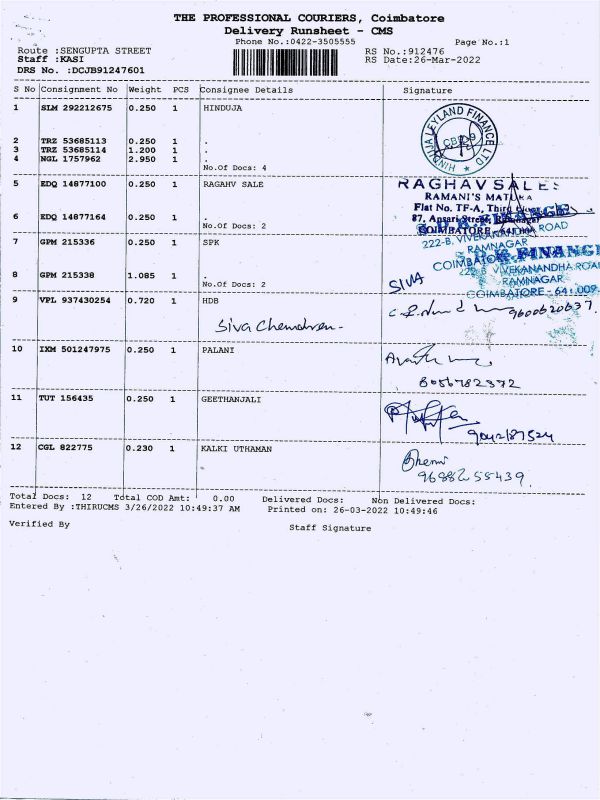 THE PROFESSIONAL COURIERS, Coimbatore
Delivery Runsheet - CMS
Phone No.:0422-3505555 Page No.:1
Route :SENGUPTA STREET RS No.:912476
Staff :KASI RS Date:26-Mar-2022
DRS No. :DCJB91247601
S No Consignment No Weight PCS Consignee Details Signature
1 SLM 292212675 0.250 1 HINDUJA
HINDUJA LEYLAND FINANCE LTD
2 TRZ 53685113 0.250 1 .
3 TRZ 53685114 1.200 1 .
4 NGL 1757962 2.950 1 .
No.Of Docs: 4
5 EDQ 14877100 0.250 1 RAGAHV SALE
RAGHAV SALES
RAMANI'S MATUKA
Flat No. TF-A, Third
87, Ansari Street, Ramnagar
COIMBATORE - 641
6 EDQ 14877164 0.250 1 .
No.Of Docs: 2
222-B, VIVEKANANDHA ROAD
RAMNAGAR
7 GPM 215336 0.250 1 SPK
FINANCE
VIVEKANANDHA ROAD
RAMNAGAR
COIMBATORE - 641 009
8 GPM 215338 1.085 1 .
No.Of Docs: 2
SIVA
9 VPL 937430254 0.720 1 HDB
9600620637
10 IXM 501247975 0.250 1 PALANI
8056782372
11 TUT 156435 0.250 1 GEETHANJALI
9042187524
12 CGL 822775 0.230 1 KALKI UTHAMAN
9688258439
Total Docs: 12 Total COD Amt: 0.00 Delivered Docs: Non Delivered Docs:
Entered By :THIRUCMS 3/26/2022 10:49:37 AM Printed on: 26-03-2022 10:49:46
Verified By Staff Signature